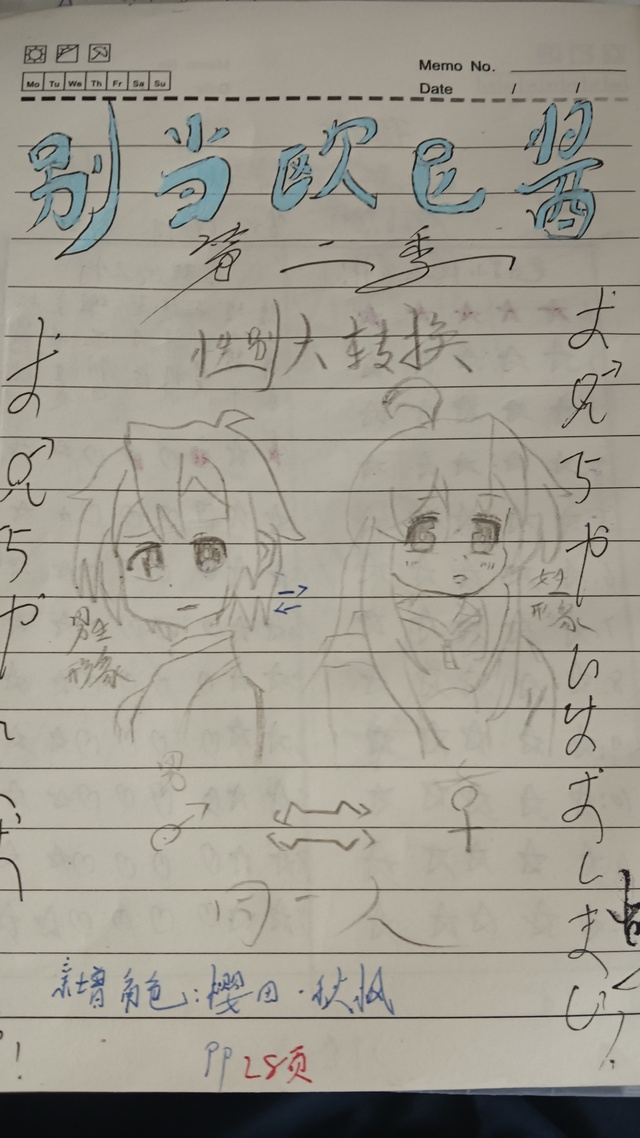 Memo No.
Mo Tu We Th Fr Sa Su
Date / /
别当欧尼酱
第二季
性别大转换
お兄ちゃんはおしまい!
男生
形象
女生
形象
男
女
同一人
新增角色:樱田·秋枫
PP 28页